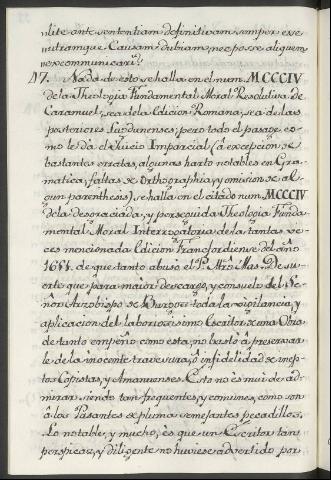 ulite ante sententiam definitivam semper exe
utramque Causam dubiam, nec posse aliquem
excommunicari.
47. Nada de esto se halla en el num. MCCCIV
de la Theologia Fundamental Moral Resolutiva de
Caramuel, sea de la Edicion Romana, sea de las
posteriores Lugdunenses; pero todo el pasage co-
mo le da el Juicio Imparcial (â excepcion de
bastantes erratas, algunas harto notables en Gra-
matica, faltas de Orthographia, y omision de al-
gun parenthesis) se halla en el citado num. MCCCIV
de la desgraciada, y perseguida Theologia Funda-
mental Moral Interrogatoria de la tantas ve-
ces mencionada Edicion Francfordiense del año
1651. de que tanto abusó el P. Mro. De su-
erte que para maior descargo, y consuelo del Se-
ñor Arzobispo de Burgos toda la vigilancia, y
aplicacion del laboriosisimo Escritor de una Obra
de tanto empeño como esta, no bastó â preservar-
le de la inocente travesura, ô infidelidad de inep-
tos Copistas, y Amanuenses. Esto no es mui de ad-
mirar siendo tan frequentes, y comunes, como son
â los Pasantes de pluma semejantes pecadillos.
Lo notable, y mucho, es que un Escritor tan
perspicaz, y diligente no huviese advertido por